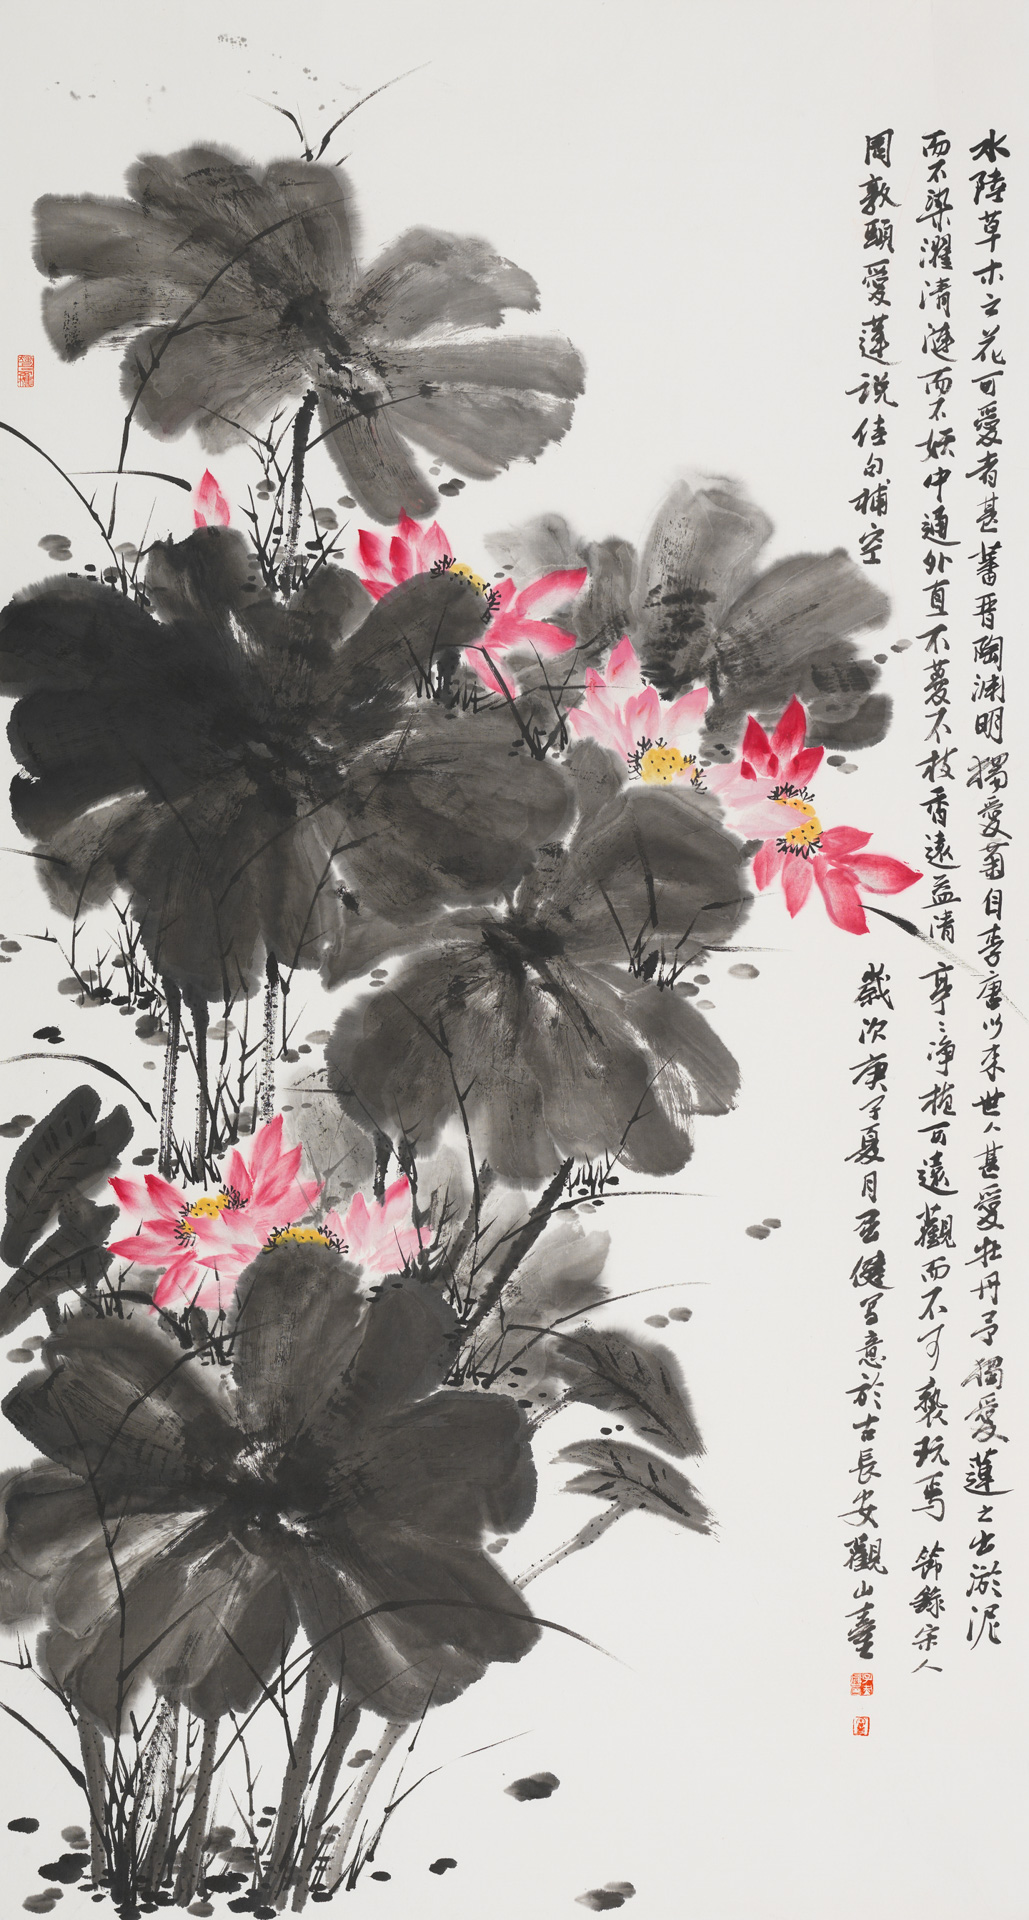 水陸草木之花可愛者甚蕃晋陶渊明獨愛菊自李唐以来世人甚愛牡丹予獨愛蓮之出淤泥
而不染濯清漣而不妖中通外直不蔓不枝香遠益清 亭〻净植可遠觀而不可褻玩焉 節錄宋人
周敦頤愛蓮説佳句補空 歲次庚子夏月健写意於古長安觀山臺